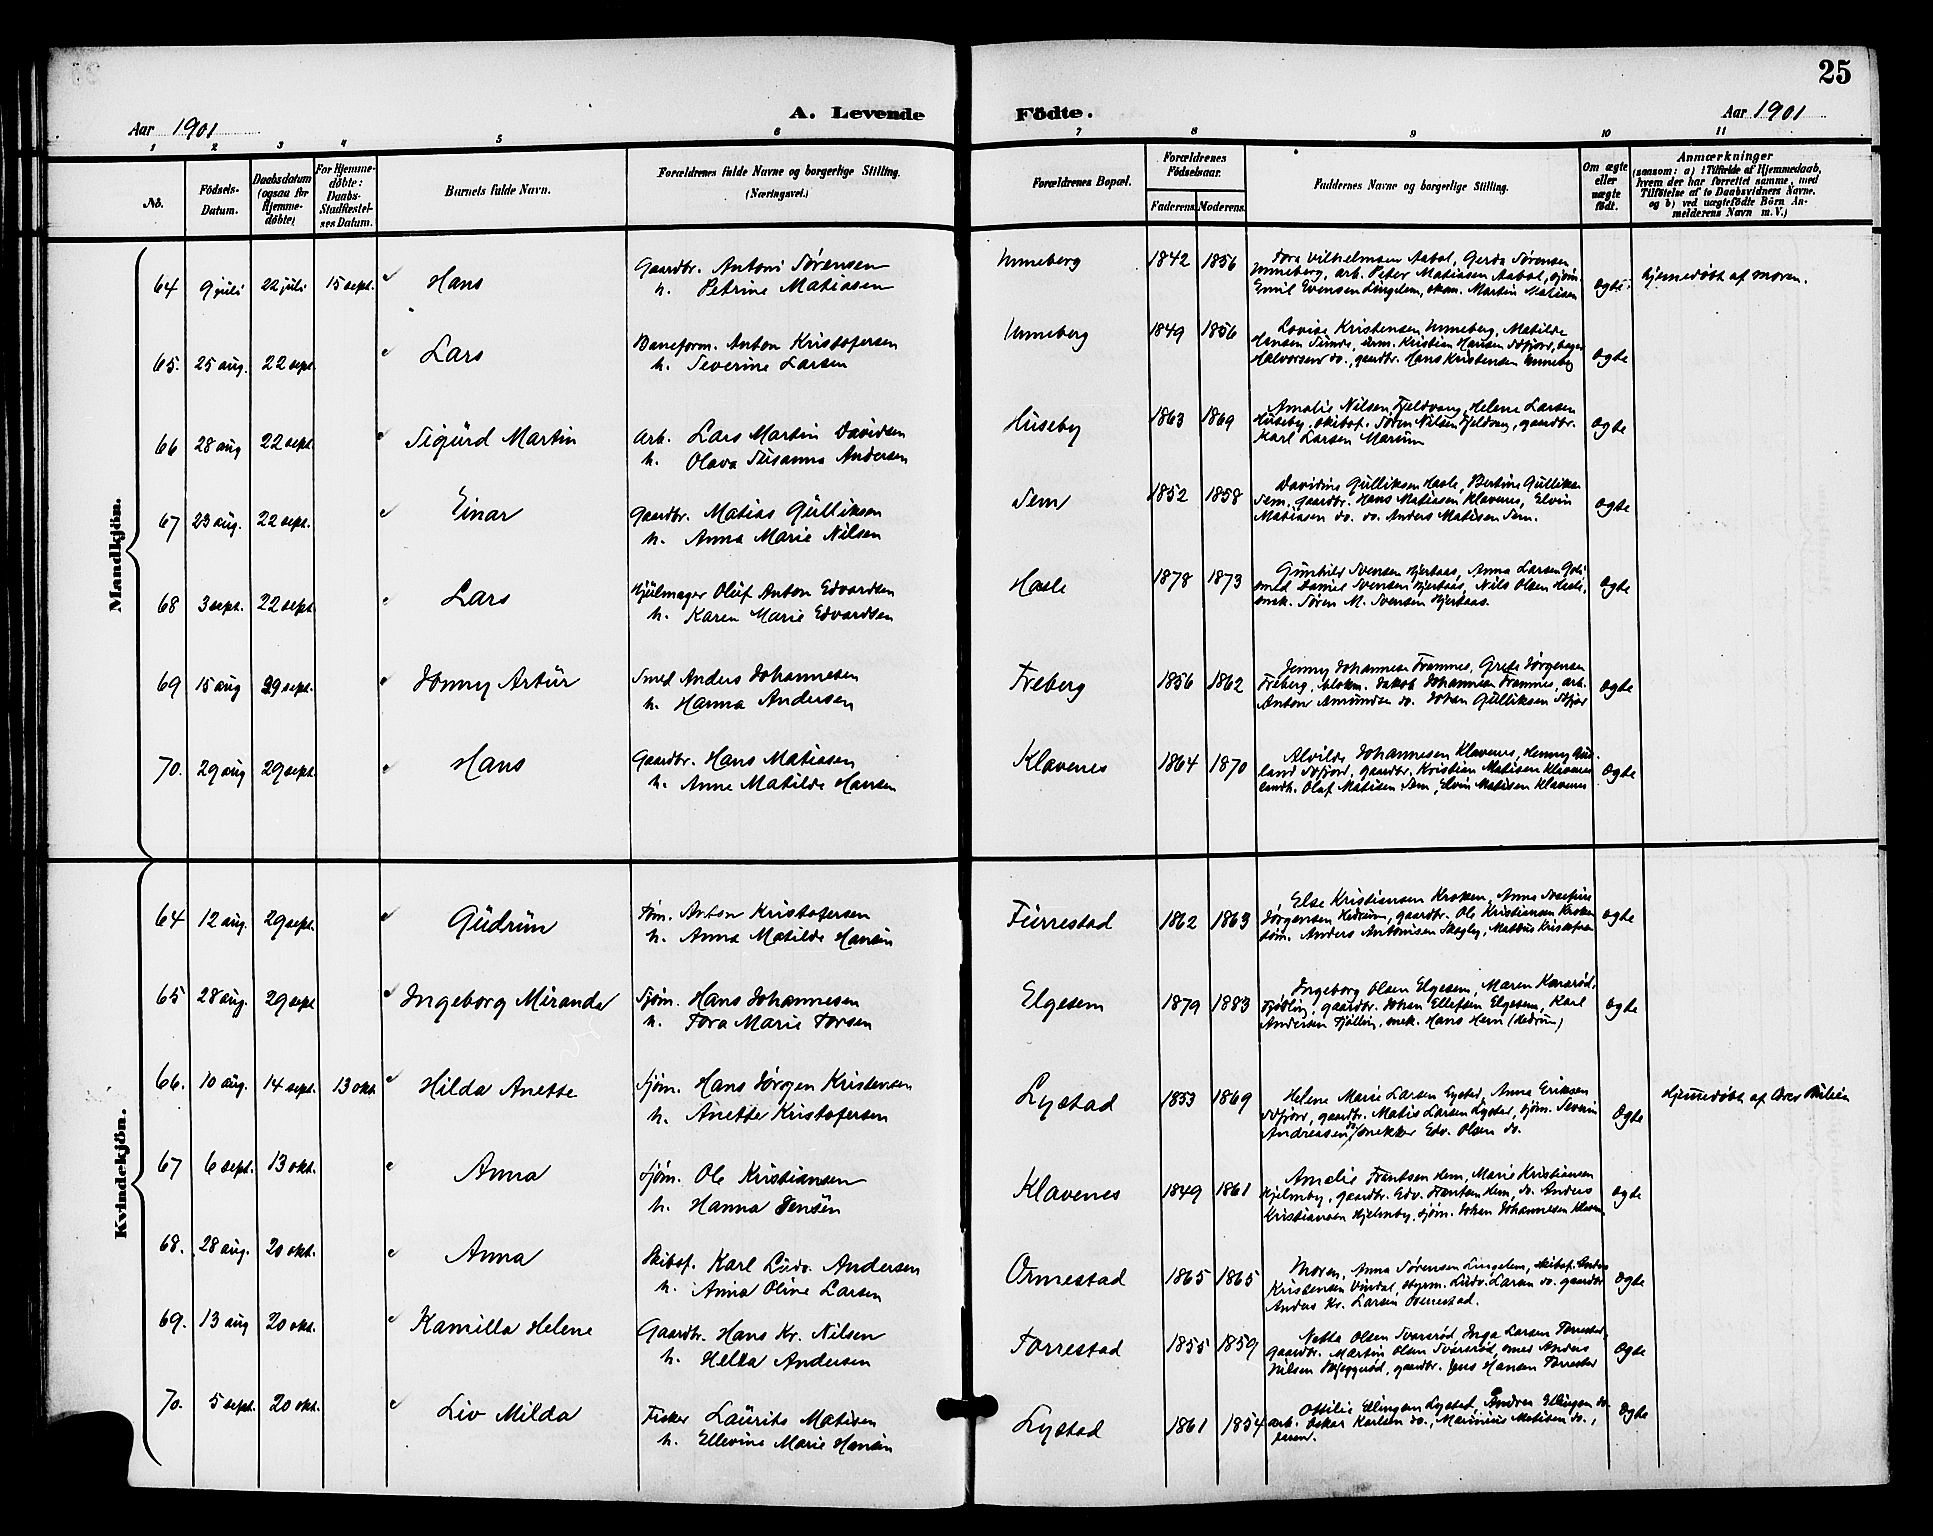 25
Aar 1901 A. Levende Födte. Aar 1901
1 2 3 4 5 6 7 8 9 10 11
No.
Födsels-Datum.
Daabsdatum (ogsaa for Hjemme-döbte)
For Hjemme-döbte: Daabs-Stadfæstel-ses Datum.
Barnets fulde Navn.
Forældrenes fulde Navne og borgerlige Stilling. (Næringsvei.)
Forældrenes Bopæl.
Forældrenes Fødselsaar.
Faderens. Moderens.
Faddernes Navne og borgerlig Stilling.
Om ægte eller uægte födt.
Anmærkninger
(saasom: a) i Tilfælde af Hjemmedaab,
hvem der har forrettet samme, med
Tilföielse af to Daabsvidners Navne,
og b) ved uægtefödte Börn An-
melderens Navn m. V.)
Mandkjön.
64 9 juli 22 juli 15 sept. Hans Gaardbr. Antoni Sørensen
h. Petrine Matiasen
Unneberg 1842 1856 Tora Vilhelmsen Aabol, Gerda Sørensen
Unneberg, arb. Peter Matiasen Aabol, sjøm.
Emil Evensen Lingelem, skom. Martin Matisen
ægte hjemmedøbt af moren.
65. 25 aug. 22 sept. Lars Baneform. Anton Kristofersen
h. Severine Larsen
Unneberg 1849 1856 Lovise Kristensen Unneberg, Matilde
Hansen Sunde, urm. Kristian Hansen Sdfjord,
Halvorsen do., gaardbr. Hans Kristensen Unneberg
ægte
66 28 aug 22 sept. Sigurd Martin Arb. Lars Martin Davidsen
h. Olava Susanna Andersen
Huseby 1863 1869 Amalie Nilsen Fjeldvang, Helene Larsen
Huseby, skibsf. Søren Nilsen Fjeldvang, gaardbr.
Karl Larsen Marum
ægte
67 23 aug. 22 sept. Einar Gaardbr. Matias Gulliksen
h. Anna Marie Nilsen
Sem 1852 1858 Davidine Gulliksen Hasle, Bertine Gulliksen
Sem, gaardbr. Hans Matiasen Klavenes, Elvin
Matiasen do. do. Anders Matisen Sem.
ægte
68 3 sept. 22 sept. Lars Hjulmager Oluf Anton Edvardsen
h. Karen Marie Edvardsen
Hasle 1878 1873 Gunhild Svensen Hjertaas, Anna Larsen
smed Daniel Svensen Hjertaas, Nils Olsen Hasle,
snek. Søren M. Svensen Hjertaas.
ægte
69 15 aug 29 sept. Jonny Artur Smed Anders Johannesen
h. Hanna Andersen
Freberg 1856 1862 Jenny Johannesen Framnes, Grete Jørgensen
Freberg, blokm. Jakob Johannesen Framnes, arb.
Anton Amundsen do. Johan Gulliksen Sdfjor
ægte
70. 29 aug 29 sept. Hans Gaardbr. Hans Matiasen
h. Anne Matilde Hansen
Klavenes 1864 1870 Alvilde Johannesen Klavenes, Henny Aus-
land Sdfjord, gaardbr. Kristian Matisen Klavenes
landh. Olaf Matisen Sem, Elvin Matisen Klavenes
ægte
Kvindekjön.
64 12 aug. 29 sept. Gudrun Tøm. Anton Kristofersen
h. Anna Matilde Hansen
Furrestad 1862 1863 Else Kristiansen Kroken, Anna Josefine
Jørgensen Hedrum, gaardbr. Ole Kristiansen Kroken
tøm. Anders Antonisen Skogby, Mattius Kristofersen
ægte
65 28 aug. 29 sept Ingeborg Miranda Sjøm. Hans Johannesen
h. Tora Marie Torsen
Elgesem 1879 1883 Ingeborg Olsen Elgesem, Maren
Tjødling, gaardbr. Johan Ellefsen Elgesem, Karl
Andersen Tjølling, snek. Hans Hem (Hedrum)
ægte
66. 10 aug. 14 sept. 13 okt. Hilda Anette Sjøm. Hans Jørgen Kristensen
h. Anette Kristofersen
Lystad 1853 1869 Helene Marie Larsen Lystad, Anna Eriksen
Sdfjord, gaardbr. Matis Larsen Lystad, sjøm. Severin
Andreasen do snekker Edv. Olsen do.
ægte Hjemmedøbt af
67 6 sept. 13 okt. Anna Sjøm. Ole Kristiansen
h. Hanna Jensen
Klavenes 1849 1861 Amalie Frantsen Hem, Marie Kristiansen
Hjelmby, gaardbr. Edv. Frantsen Hem, do. Anders
Kristiansen Hjelmby, sjøm. Johan Johannesen Klaven.
ægte
68. 28 aug. 20 okt. Anna Skibsf. Karl Ludv. Andersen
h. Anna Oline Larsen
Ormestad 1865 1865 Moren, Anna Sørensen Lingelem, skibsf. Anders
Kristensen Vindal, styrm. Ludv. Larsen do. gaardbr
Anders Kr. Larsen Ormestad.
ægte
69. 13 aug 20 okt. Kamilla Helene Gaardbr. Hans Kr. Nilsen
h. Hella Andersen
Torrestad 1855 1859 Netta Olsen Svarsrød, Inga Larsen Torrestad,
gaardbr. Martin Olsen Svarsrød, smed Anders
Nilsen Skjeggerød, gaardbr. Jens Hansen Torrestad
ægte
70. 5 sept. 20 okt. Liv Milda Fisker Laurits Matisen
h. Ellevine Marie Hansen
Lystad 1861 1854 Ottilie Ellingsen Lystad, Andrea Ellingsen do
arb. Oskar Karlsen do., Marinius Matisen do.,
faren.
ægte